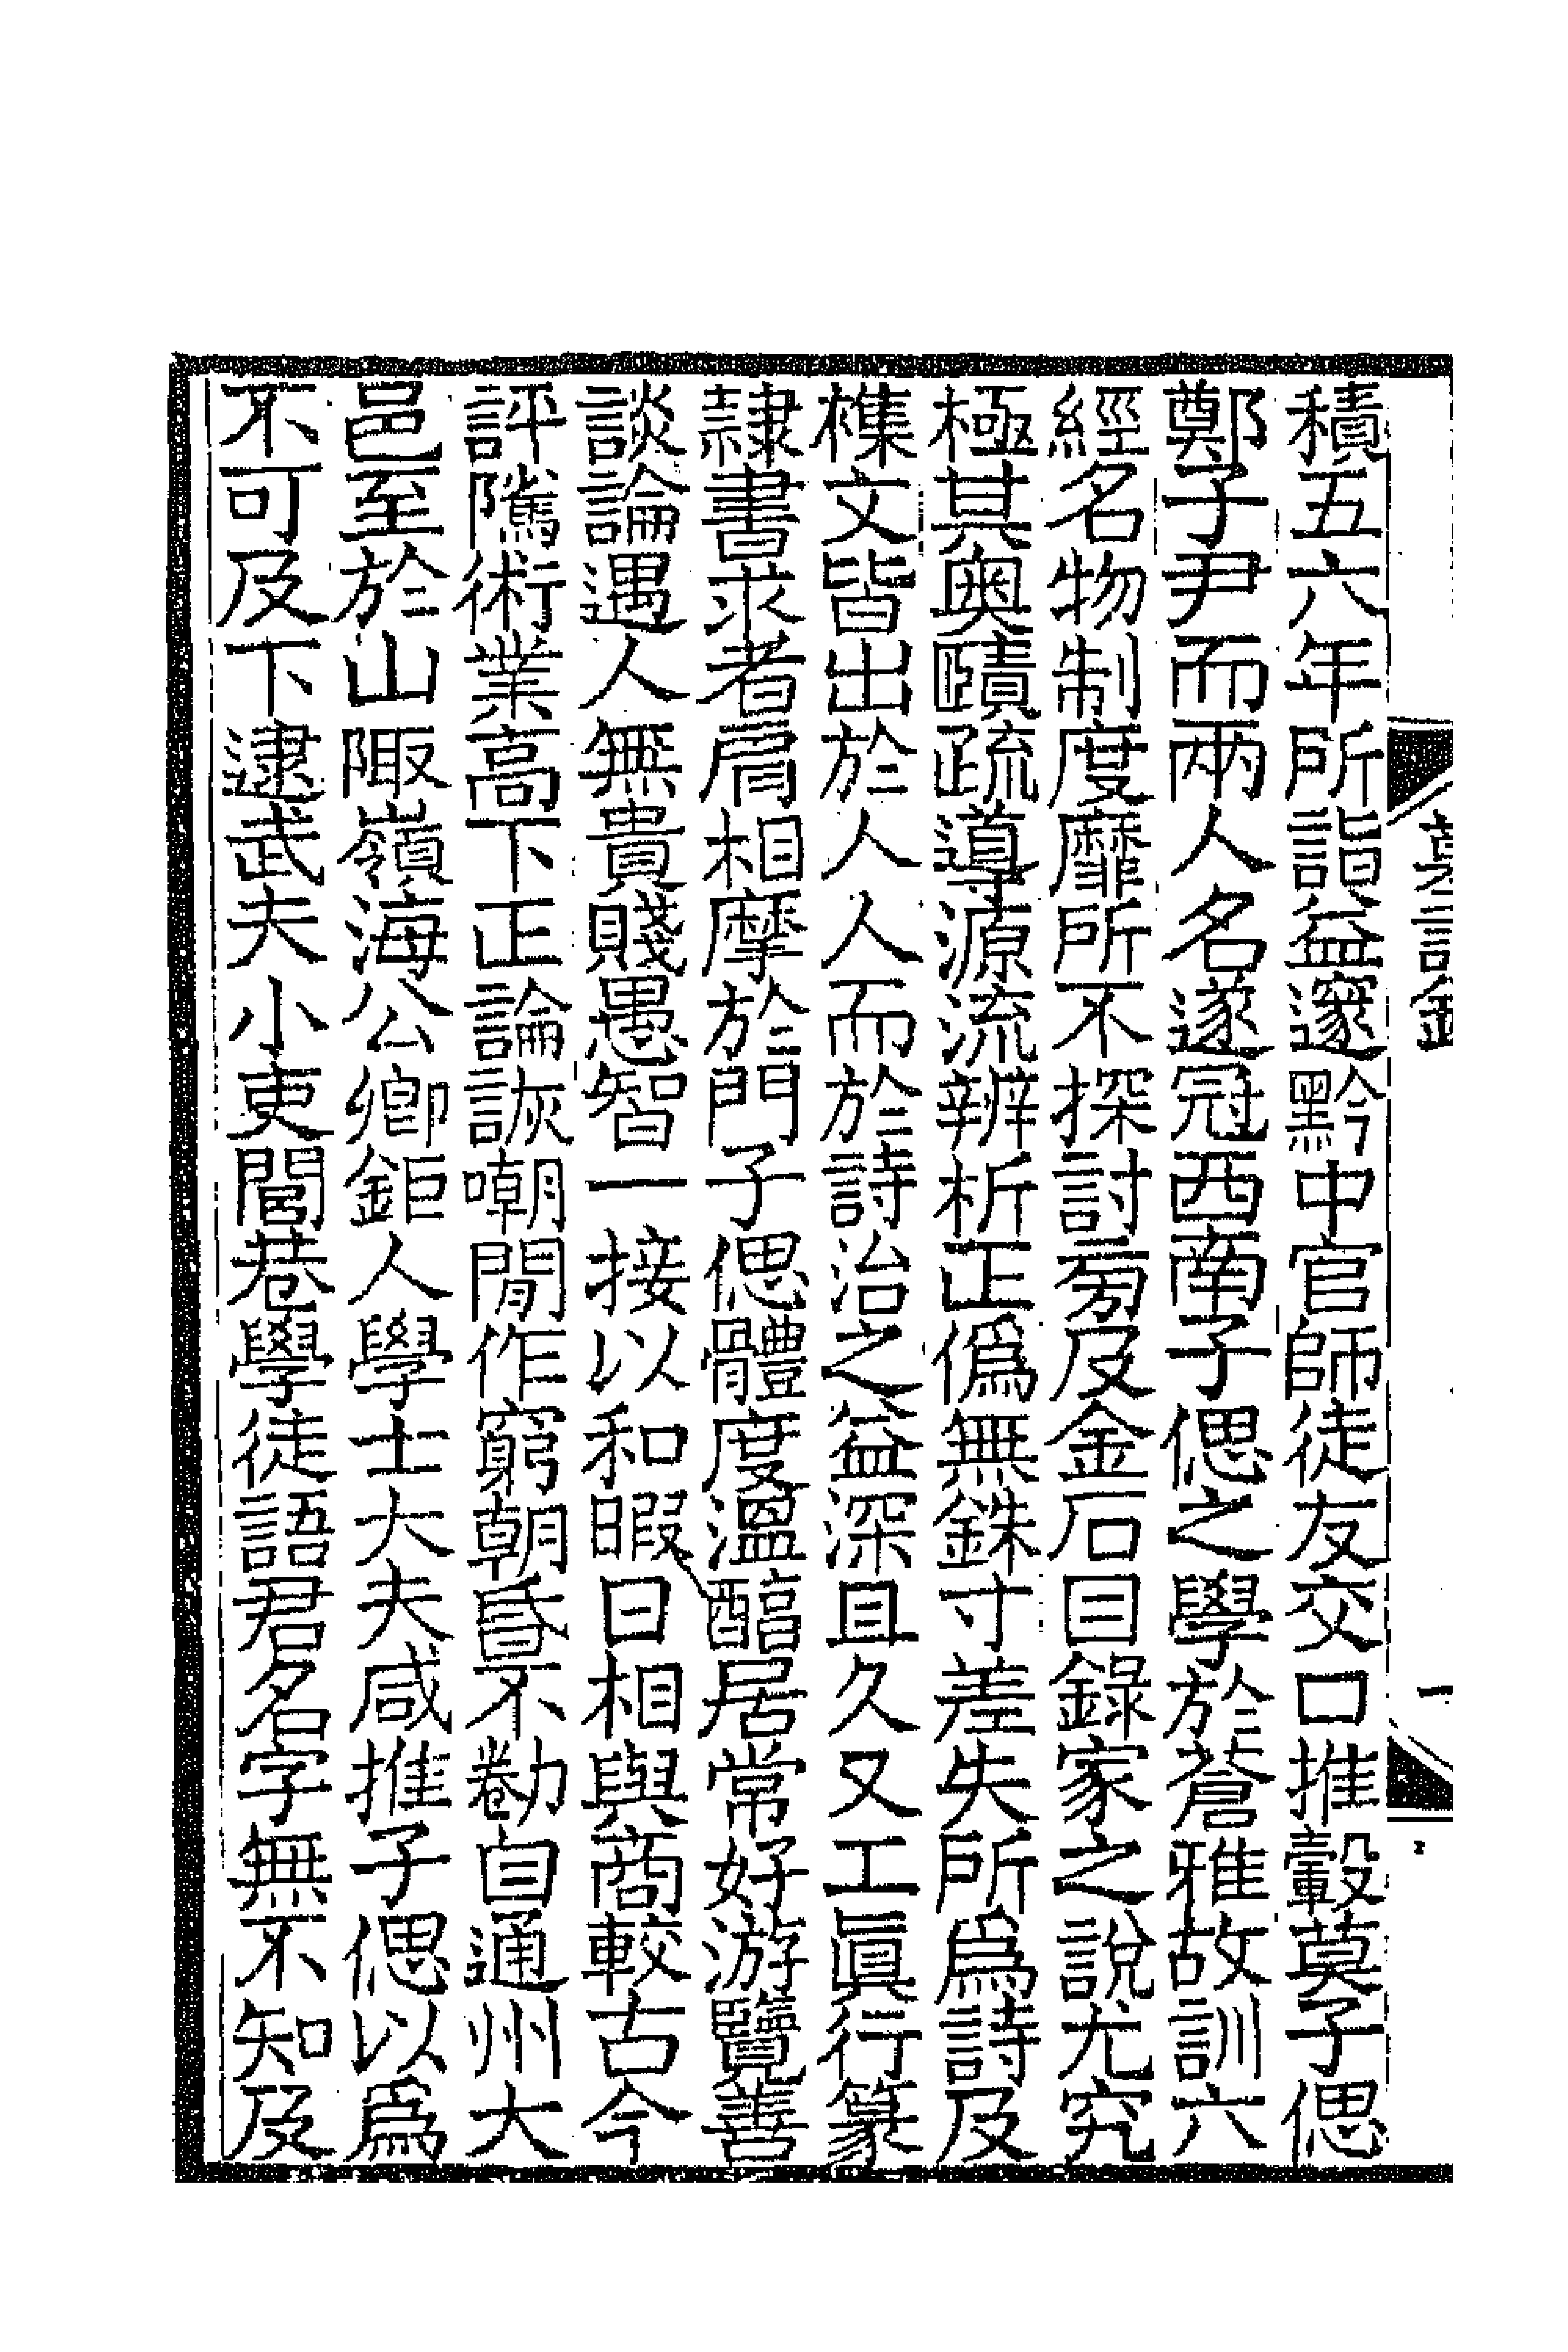 積五六年所詣益邃黔中官師徒友交口推轂莫子偲
鄭子尹而兩人名遂冠西南子偲之學於蒼雅故訓六
經名物制度靡所不探討㫄及金石目錄家之說尤究
極其奧賾疏導源流辨析正僞無銖寸差失所爲詩及
襍文皆出於人人而於詩治之益深且久又工眞行篆
隷書求者肩相摩於門子偲體度溫醕居常好游覽善
談論遇人無貴賤愚智一接以和暇日相與商較古今
評隲術業高下正論詼嘲閒作窮朝昬不勌自通州大
邑至於山陬嶺海公卿鉅人學士大夫咸推子偲以爲
不可及下逮武夫小吏閭巷學徒語君名字無不知及
一